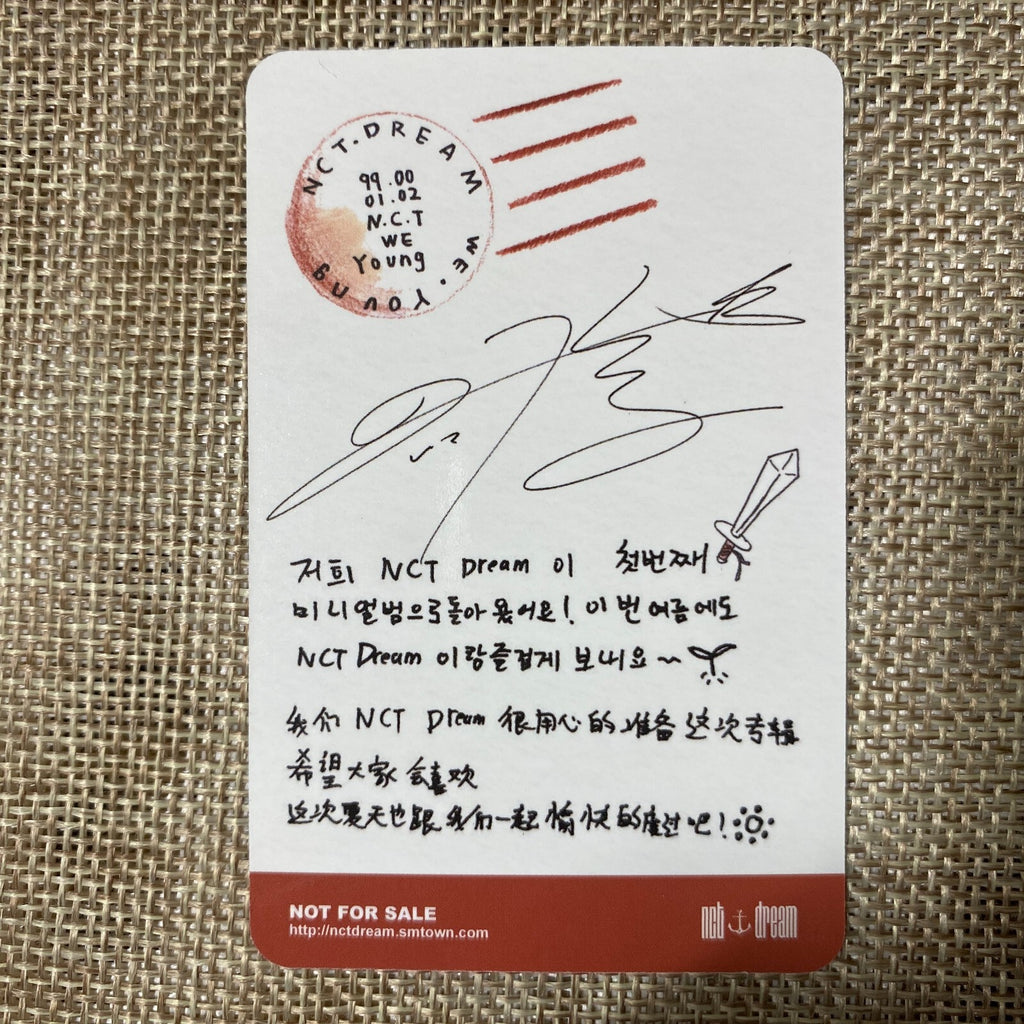 NCT.DREAM WE.Young
99.00
01.02
N.C.T
WE
Young
저희 NCT Dream 이 첫번째
미니앨범으로 돌아 왔어요! 이번 여름에도
NCT Dream 이랑 즐겁게 보내요~
我们 NCT Dream 很用心的准备这次专辑
希望大家会喜欢
这次夏天也跟我们一起愉快的度过吧!
NOT FOR SALE
http://nctdream.smtown.com
nct dream